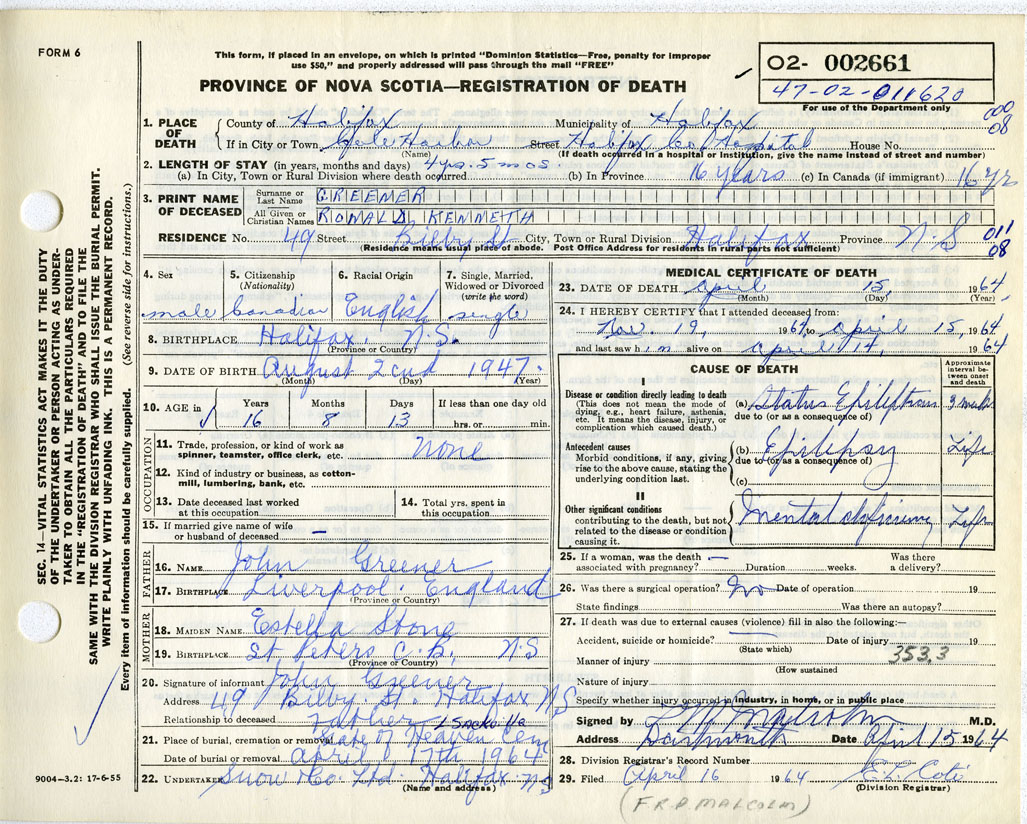 FORM 6
This form, if placed in an envelope, on which is printed "Dominion Statistics—Free, penalty for improper
use $50," and properly addressed will pass through the mail "FREE"
PROVINCE OF NOVA SCOTIA—REGISTRATION OF DEATH
02- 002661
47-02-011620
For use of the Department only
000
08
SEC. 14—VITAL STATISTICS ACT MAKES IT THE DUTY
OF THE UNDERTAKER OR PERSON ACTING AS UNDER-
TAKER TO OBTAIN ALL THE PARTICULARS REQUIRED
IN THE "REGISTRATION OF DEATH" AND TO FILE THE
SAME WITH THE DIVISION REGISTRAR WHO SHALL ISSUE THE BURIAL PERMIT.
WRITE PLAINLY WITH UNFADING INK. THIS IS A PERMANENT RECORD.
Every item of information should be carefully supplied. (See reverse side for instructions.)
1. PLACE OF DEATH County of Halifax Municipality of Halifax
If in City or Town Cole Harbor Street Halifax Co. Hospital House No.
(Name) (If death occurred in a hospital or institution, give the name instead of street and number)
2. LENGTH OF STAY (in years, months and days) 4 yrs. 5 mos.
(a) In City, Town or Rural Division where death occurred (b) In Province 16 years (c) In Canada (if immigrant) 16 yr
3. PRINT NAME OF DECEASED Surname or Last Name GREENER
All Given or Christian Names RONALD KENNETH
RESIDENCE No. 49 Street Bilby St. City, Town or Rural Division Halifax Province N.S
(Residence means usual place of abode. Post Office Address for residents in rural parts not sufficient)
011
08
4. Sex 5. Citizenship (Nationality) 6. Racial Origin 7. Single, Married, Widowed or Divorced (write the word)
male Canadian English single
8. BIRTHPLACE Halifax, N.S.
(Province or Country)
9. DATE OF BIRTH August 22nd 1947
(Month) (Day) (Year)
10. AGE in Years Months Days If less than one day old
16 8 13 hrs. or min.
OCCUPATION
11. Trade, profession, or kind of work as spinner, teamster, office clerk, etc. None
12. Kind of industry or business, as cotton-mill, lumbering, bank, etc.
13. Date deceased last worked at this occupation
14. Total yrs. spent in this occupation
15. If married give name of wife or husband of deceased —
FATHER
16. NAME John Greener
17. BIRTHPLACE Liverpool England
(Province or Country)
MOTHER
18. MAIDEN NAME Estella Stone
19. BIRTHPLACE St Peters C.B., N.S
(Province or Country)
20. Signature of informant John Greener
Address 49 Bilby St. Halifax N S
Relationship to deceased Father
21. Place of burial, cremation or removal Gate of Heaven Cem Sackville
Date of burial or removal April 17th 1964
22. UNDERTAKER Snow Co. Ltd. Halifax N S
(Name and address)
9004-3.2: 17-6-55
MEDICAL CERTIFICATE OF DEATH
23. DATE OF DEATH April 15, 1964
(Month) (Day) (Year)
24. I HEREBY CERTIFY that I attended deceased from:
Nov. 19, 1961 to April 15, 1964
and last saw him alive on April 14, 1964
CAUSE OF DEATH
Approximate interval between onset and death
I
Disease or condition directly leading to death
(This does not mean the mode of dying, e.g., heart failure, asthenia, etc. It means the disease, injury, or complication which caused death.)
(a) Status Epilepticus 3 weeks
due to (or as a consequence of)
Antecedent causes
Morbid conditions, if any, giving rise to the above cause, stating the underlying condition last.
(b) Epilepsy Life
due to (or as a consequence of)
(c)
II
Other significant conditions
contributing to the death, but not related to the disease or condition causing it.
Mental deficiency Life
25. If a woman, was the death associated with pregnancy? — Duration weeks. Was there a delivery?
26. Was there a surgical operation? No Date of operation 19
State findings Was there an autopsy?
27. If death was due to external causes (violence) fill in also the following:—
Accident, suicide or homicide? — Date of injury 19
(State which)
353.3
Manner of injury
(How sustained
Nature of injury
Specify whether injury occurred in industry, in home, or in public place
Signed by M.D.
Address Dartmouth Date April 15 1964
28. Division Registrar's Record Number
29. Filed April 16 1964 E.L. Cote
(Division Registrar)
(F.R.P. MALCOLM)